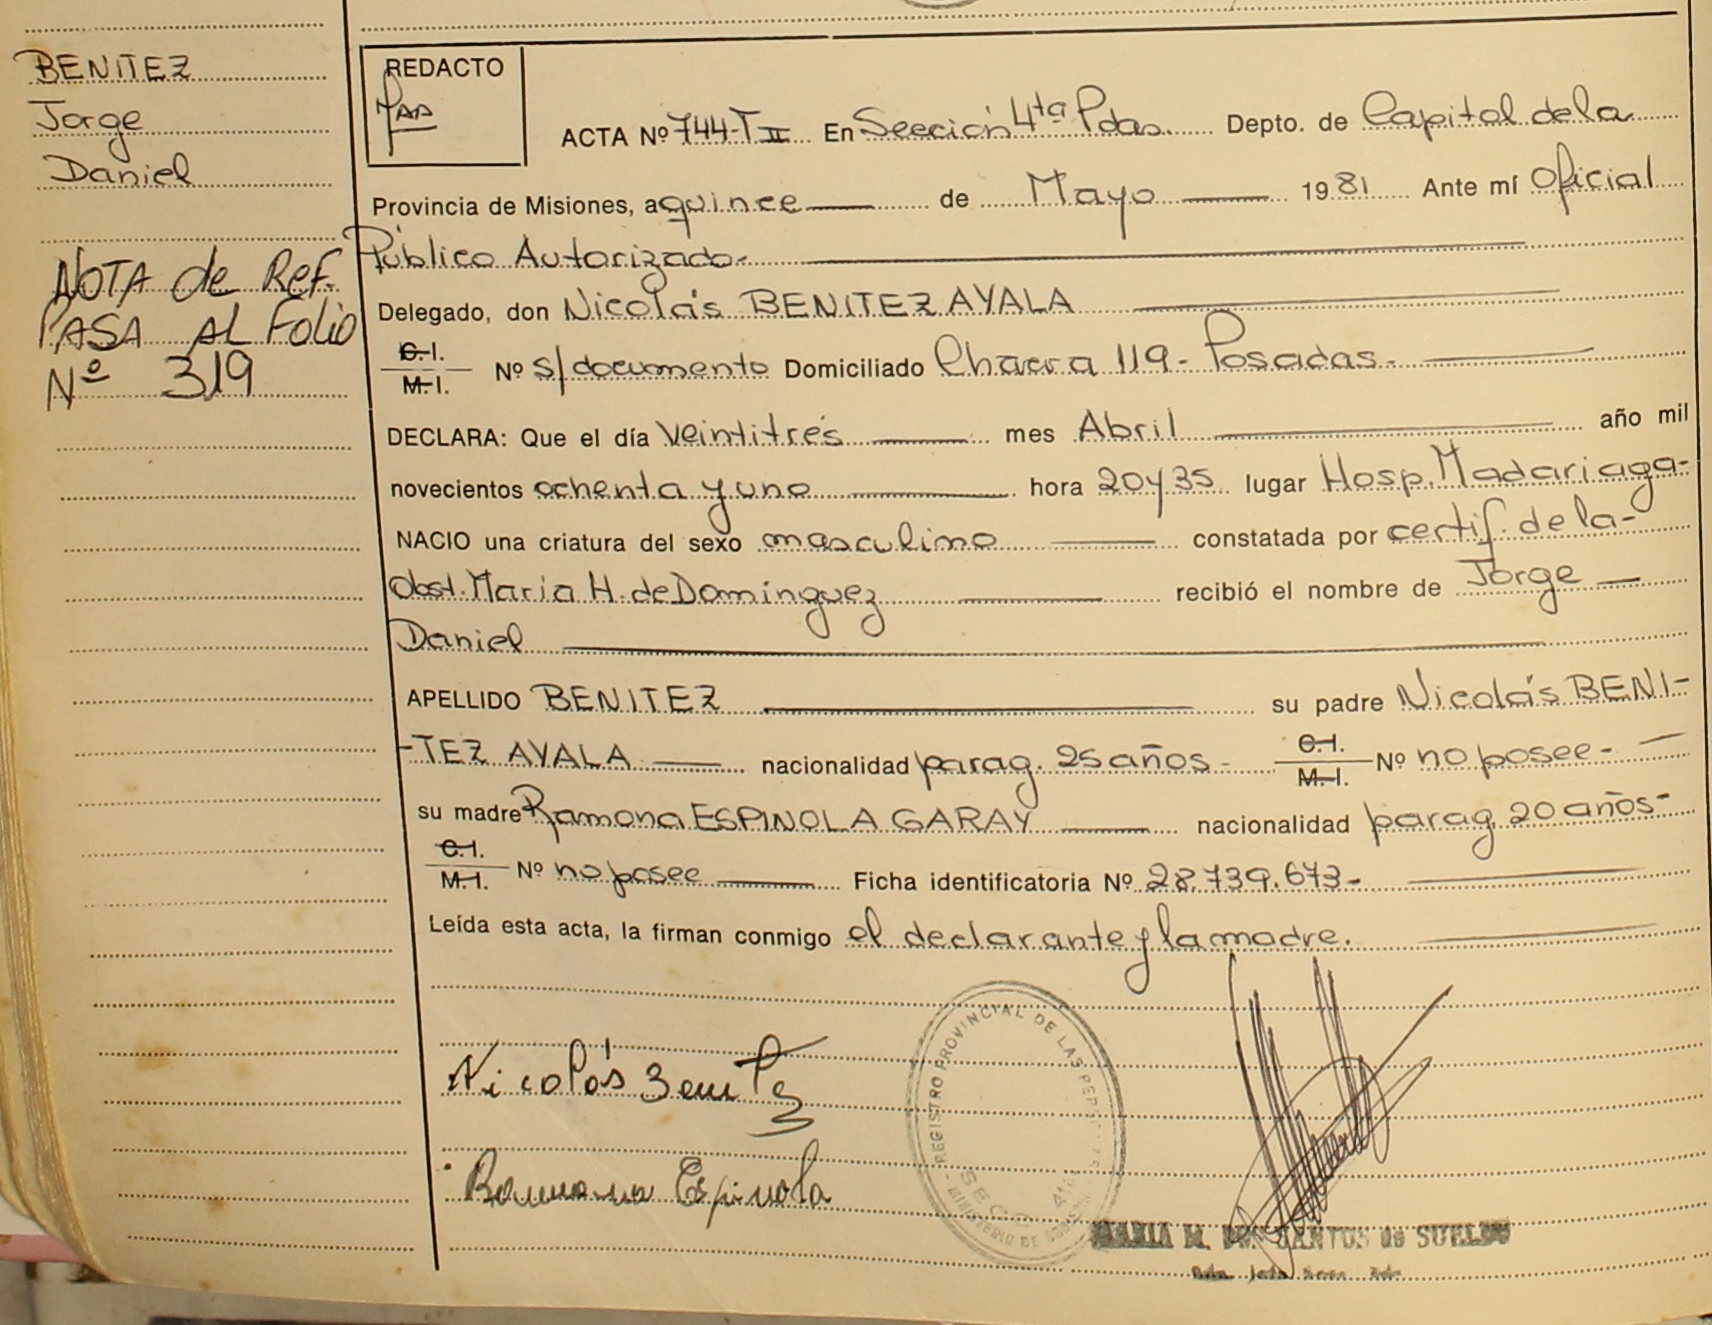 BENITEZ
Jorge
Daniel
NOTA de Ref.
PASA AL Folio
Nº 319
REDACTO
ACTA Nº 744-T II En Sección 4ta Pdas. Depto. de Capital de la
Provincia de Misiones, a quince de Mayo 1981 Ante mí Oficial
Público Autorizado-
Delegado, don Nicolás BENITEZ AYALA
C.I.
M.I. Nº s/documento Domiciliado Chacra 119- Posadas-
DECLARA: Que el día veintitrés mes Abril año mil
novecientos ochenta y uno hora 20y35 lugar Hosp. Madariaga-
NACIO una criatura del sexo masculino constatada por certif. de la-
Obst. Maria H. de Domínguez recibió el nombre de Jorge
Daniel
APELLIDO BENITEZ su padre Nicolás BENI-
-TEZ AYALA nacionalidad parag. 25 años- C.I.
M.I. Nº no posee-
su madre Ramona ESPINOLA GARAY nacionalidad parag. 20 años-
C.I.
M.I. Nº no posee Ficha identificatoria Nº 28.739.673-
Leída esta acta, la firman conmigo el declarante y la madre.
Nicolás Benitez
Ramona Espinola
REGISTRO PROVINCIAL DE LAS
MINISTERIO DE
MARIA M. DOS SANTOS de SUELDO